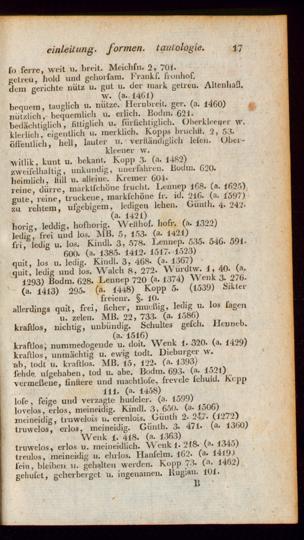 einleitung. formen. tautologie. 17
so ferre, weit u. breit. Meichsn. 2, 701.
getreu, hold und gehorsam. Frankf. fronhof.
dem gerichte nütz u. gut u. der mark getreu. Altenhaßl.
w. (a. 1461)
bequem, tauglich u. nütze. Hernbreit. ger. (a. 1460)
nützlich, bequemlich u. erlich. Bodm. 621.
bedächtiglich, sittiglich u. fürsichtiglich. Oberkleener w.
klerlich, eigentlich u. merklich. Kopps bruchst. 2, 53.
öffentlich, hell, lauter u. verständlich lesen. Ober-
kleener w.
witlik, kunt u. bekant. Kopp 3. (a. 1482)
zweifelhaftig, unkundig, unerfahren. Bodm. 620.
heimlich, still u. alleine. Kremer 604.
reine, dürre, marktschöne frucht. Lennep 168. (a. 1625)
gute, reine, truckene, markschöne fr. id. 216. (a. 1597)
zu rehtem, ufgebigem, ledigen lehen. Günth. 4. 242.
(a. 1421)
horig, leddig, hofhorig. Westhof. hofr. (a. 1322)
ledig, frei und los. MB. 5, 153. (a. 1421)
fri, ledig u. los. Kindl. 3, 578. Lennep. 535. 546. 591.
600. (a. 1385. 1412. 1517. 1523)
quit, los u. ledig. Kindl. 3, 468. (a. 1367)
quit, ledig und los. Walch 8, 272. Würdtw. 1, 40. (a.
1293) Bodm. 628. Lennep 720 (a. 1374) Wenk 3. 276.
(a. 1413) 295. (a. 1448) Kopp 5. (1539) Sikter
freienr. §. 10.
allerdings quit, frei, sicher, mueßig, ledig u. los sagen
u. zelen. MB. 22, 733. (a. 1586)
kraftlos, nichtig, unbündig. Schultes gesch. Henneb.
(a. 1516)
kraftlos, nummedogende u. dot. Wenk 1. 320. (a. 1429)
kraftlos, unmächtig u. ewig todt. Dieburger w.
ab, todt u. kraftlos. MB. 15, 122. (a. 1393)
fehde ufgehaben, tod u. abe. Bodm. 693. (a. 1521)
vermessene, finstere und machtlose, frevele schuld. Kopp
111. (a. 1458)
lose, feige und verzagte hudeler. (a. 1599)
lovelos, erlos, meineidig. Kindl. 3, 650. (a. 1506)
meineidig, truwelois u. erenlois. Günth 2. 247. (1272)
truwelos, erlos, meineidig. Günth. 3. 471. (a. 1360)
Wenk 1. 418. (a. 1363)
truwelos, erlos u. meineidlich. Wenk 1. 218. (a. 1345)
treulos, meineidig u. ehrlos. Hanselm. 162. (a. 1419)
sein, bleiben u. gehalten werden. Kopp 73. (a. 1462)
gehuset, geherberget u. ingenamen. Rugian. 101.
B